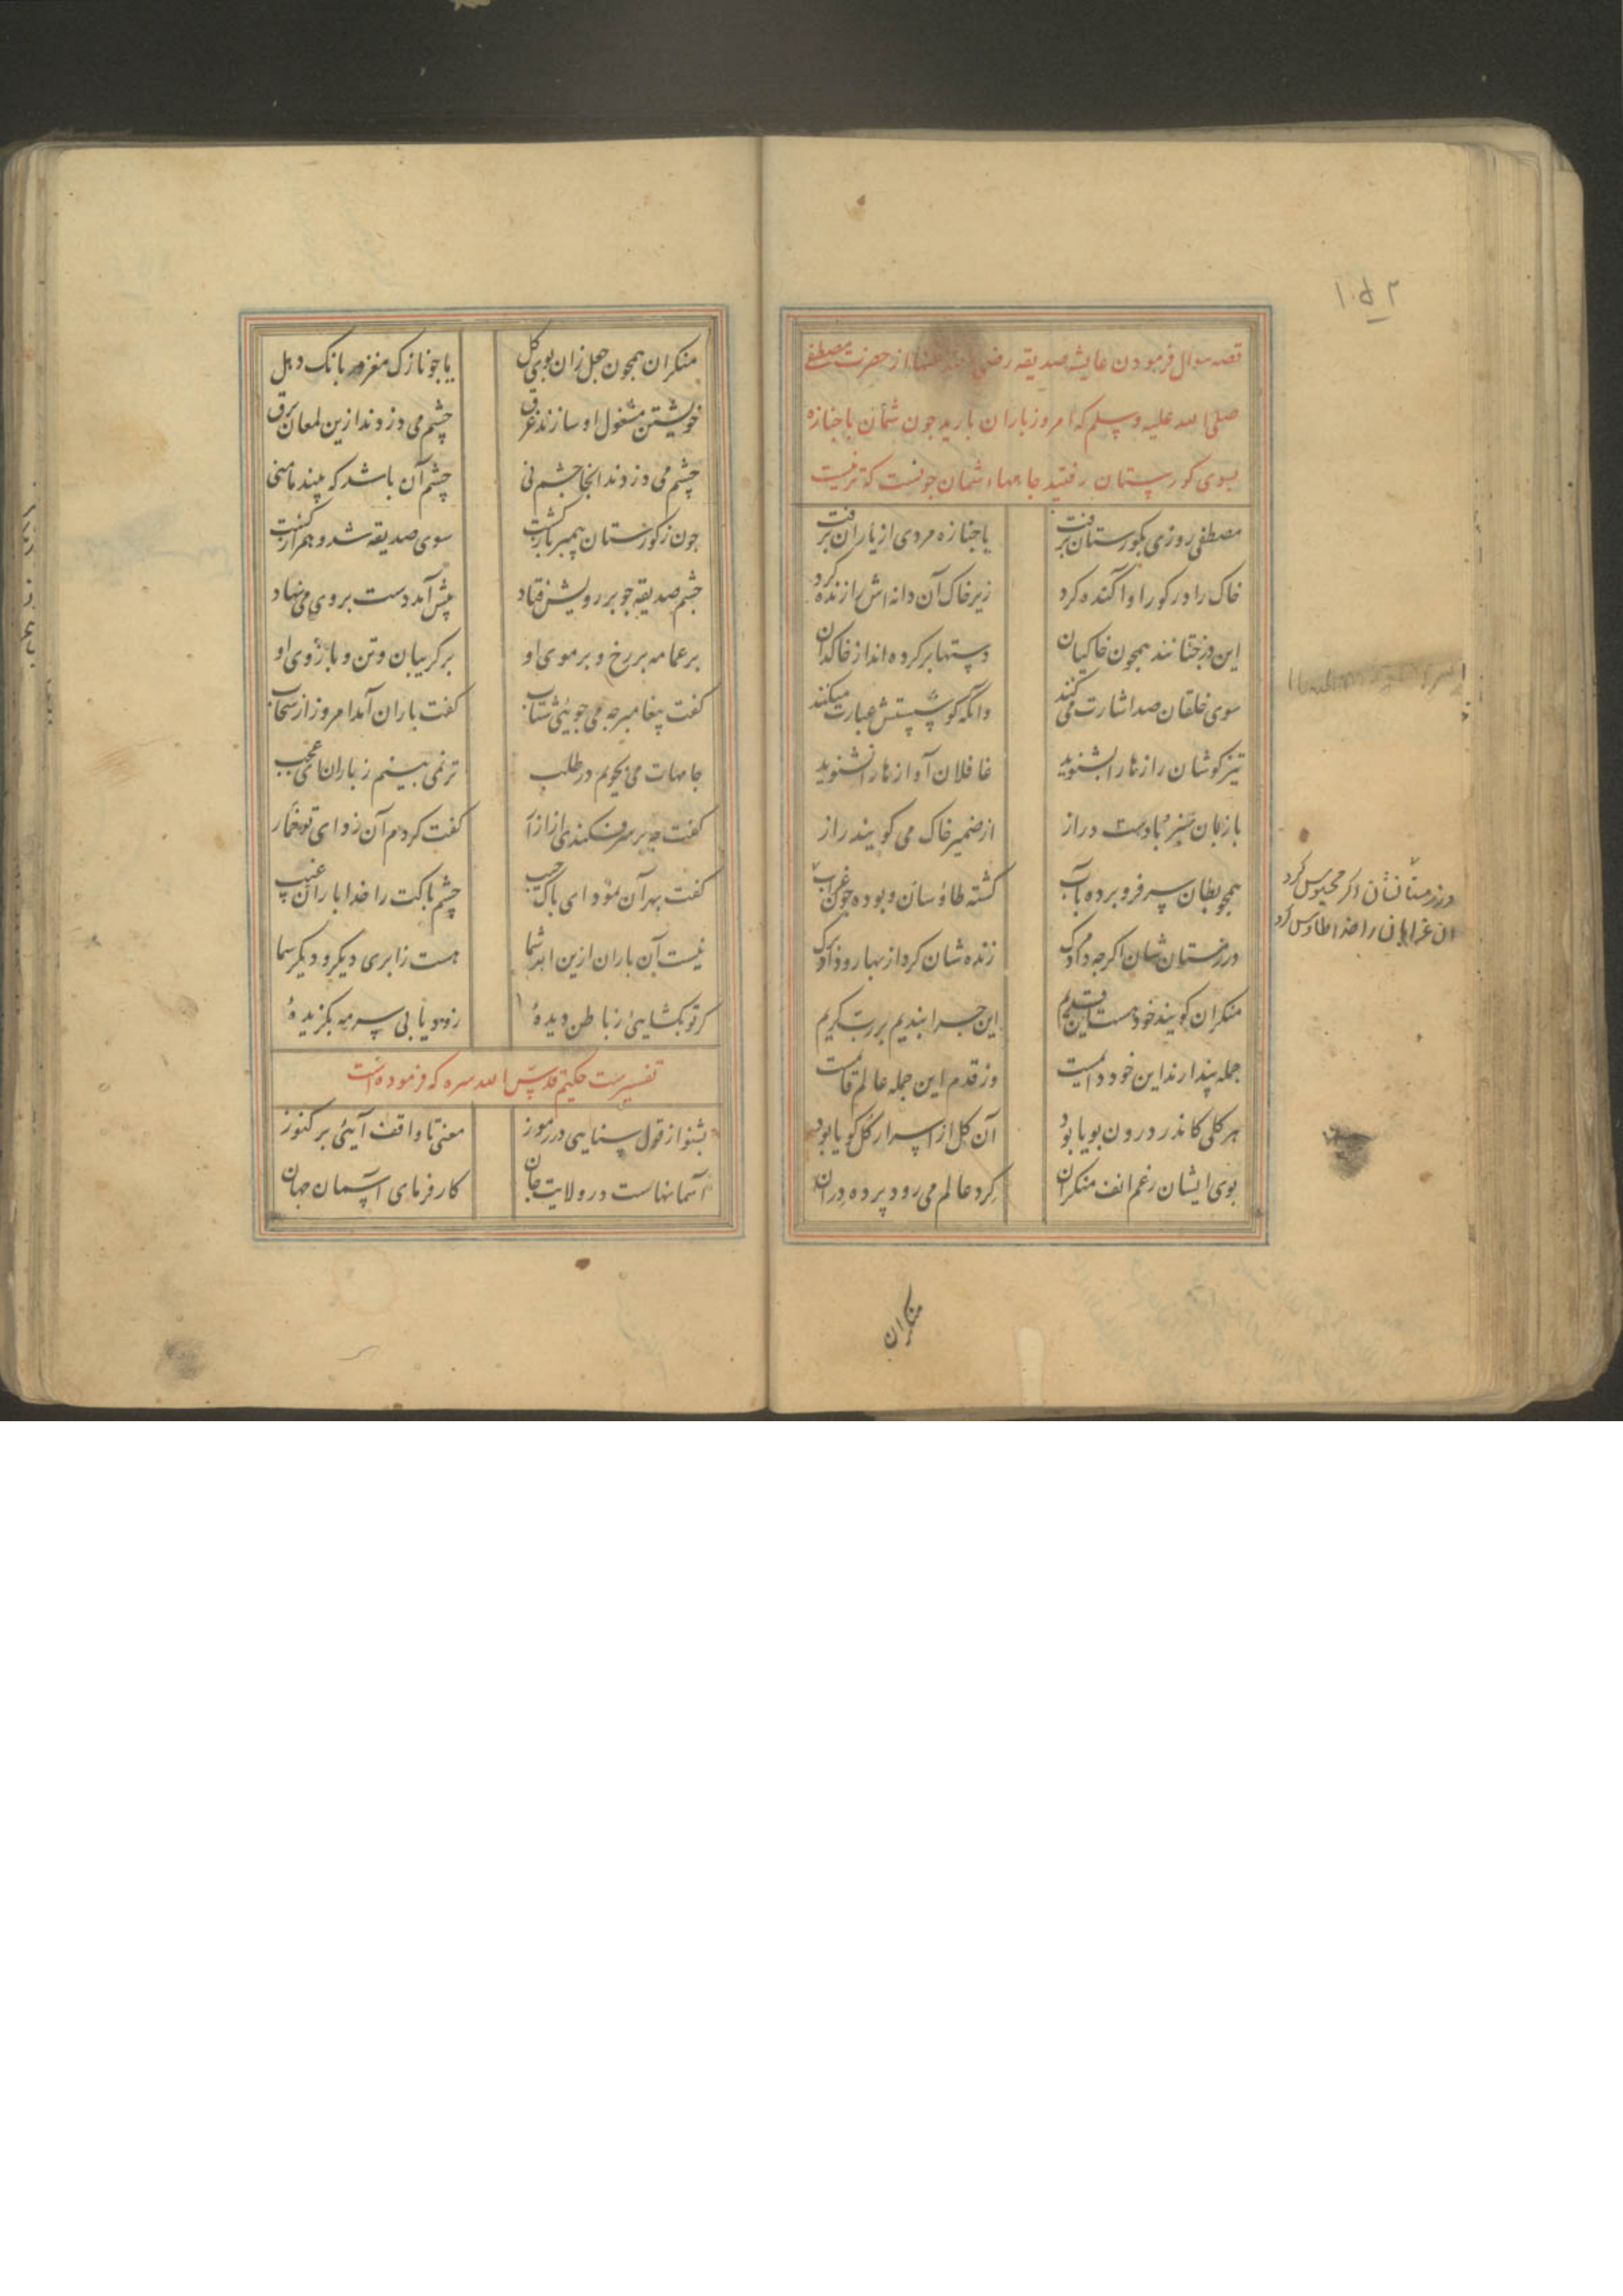 قصه سوال فرمودن عایشه صدیقه رضی الله عنها از حضرت مصطفی
صلی الله علیه وسلم که امروز باران بارید جون شمان با جنازه
بسوی کورستان رفتید جامهاء شمان جونست که تر نیست
مصطفی روزی بکورستان برفت با جنازه مردی از یاران برفت
خاک را در کور او آکنده کرد زیر خاک آن دانه اش را زنده کرد
این درختانند همجون خاکیان دستها بر کرده اند از خاکدان
سوی خلقان صد اشارت می کنند وانکه کوشستش عبارت میکنند
تیز کوشان رازها را بشنوید غافلان آوازها را نشنوید
با زبان سبز و با دست دراز از ضمیر خاک می کویند راز
همجو بطان سر فرو برده بآب کشته طاوسان و بوده جون غراب
در زمستانشان اکر محبوس کرد
آن غرابان را خدا طاوس کرد
در زمستان شان اکرجه داد مرک زنده شان کرد از بهار و داد برک
منکران کویند خود هست این قدیم این جرا بندیم بر رب کریم
جمله پندارند این خود دایمست وز قدم این جمله عالم قایمست
هر کلی کاندر درون بویا بود آن کل از اسرار کل کویا بود
بوی ایشان رغم انف منکران کرد عالم می رود پرده دران
منکران
منکران همجون جعل زان بوی کل یا جو نازک مغز در بانک دهل
خویشتن مشغول او سازند غرق چشم می دزدند ازین لمعان برق
چشم می دزدند انجا چشم نی چشم آن باشد که بیند مامنی
جون ز کورستان پیمبر باز کشت سوی صدیقه شد و همراز کشت
چشم صدیقه جو بر رویش فتاد پیش آمد دست بر وی می نهاد
بر عمامه بر رخ و بر موی او بر کریبان و تن و بازوی او
کفت پیغامبر جه می جویی شتاب کفت باران آمد امروز از سحاب
جامهات می بجویم در طلب تر نمی بینم ز باران ای عجب
کفت جه بر سر فکندی از ازار کفت کردم آن ردای تو خمار
کفت بهر آن نمود ای پاک جیب چشم پاکت را خدا باران غیب
نیست آن باران ازین ابر شما هست ز ابری دیکر و دیکر سما
کر تو بکشایی ز باطن دیدهٔ زود یابی سرمه بکزیدهٔ
تفسیر بیت حکیم قدس الله سره که فرموده است
بشنو از قول سنایی در رموز معنی تا واقف آیی بر کنوز
آسمانهاست در ولایت جان کار فرمای آسمان جهان